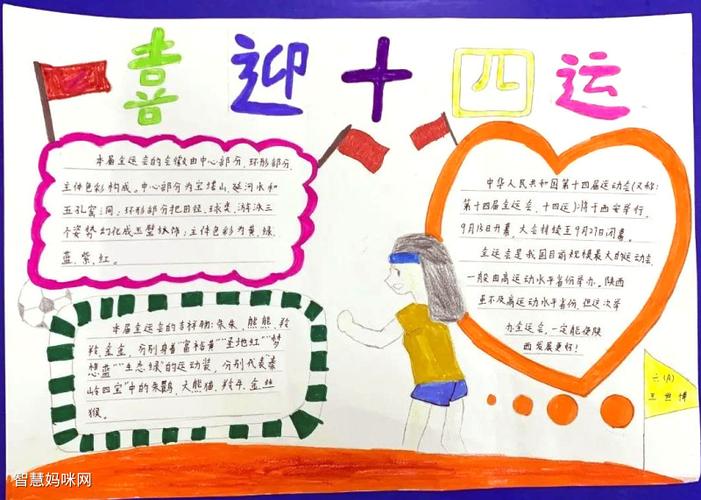 喜迎十四运
本届全运会的会徽由中心部分、环形部分、
主体色彩构成。中心部分为宝塔山、延河水和
五孔窑洞；环形部分把田径、球类、游泳三
个姿势幻化成玉璧纹饰；主体色彩为黄、绿、
蓝、紫、红。
中华人民共和国第十四届运动会(又称：
第十四届全运会、十四运)将于西安举行。
9月15日开幕，大会持续至9月27日闭幕。
全运会是我国目前规模最大的运动会，
一般由高运动水平省份举办。陕西
虽不及高运动水平省份，但这次举
办全运会，一定能使陕
西发展更好！
本届全运会的吉祥物：朱朱、熊熊、羚
羚、金金，分别身着"富裕黄""圣地红""梦
想蓝""生态绿"的运动装，分别代表秦
岭四宝"中的朱鹮、大熊猫、羚牛、金丝
猴。
六(A)
王世博
智慧妈咪网